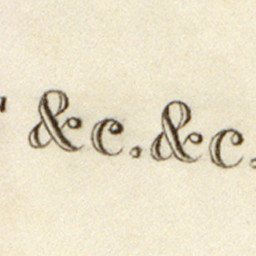 &c. &c.